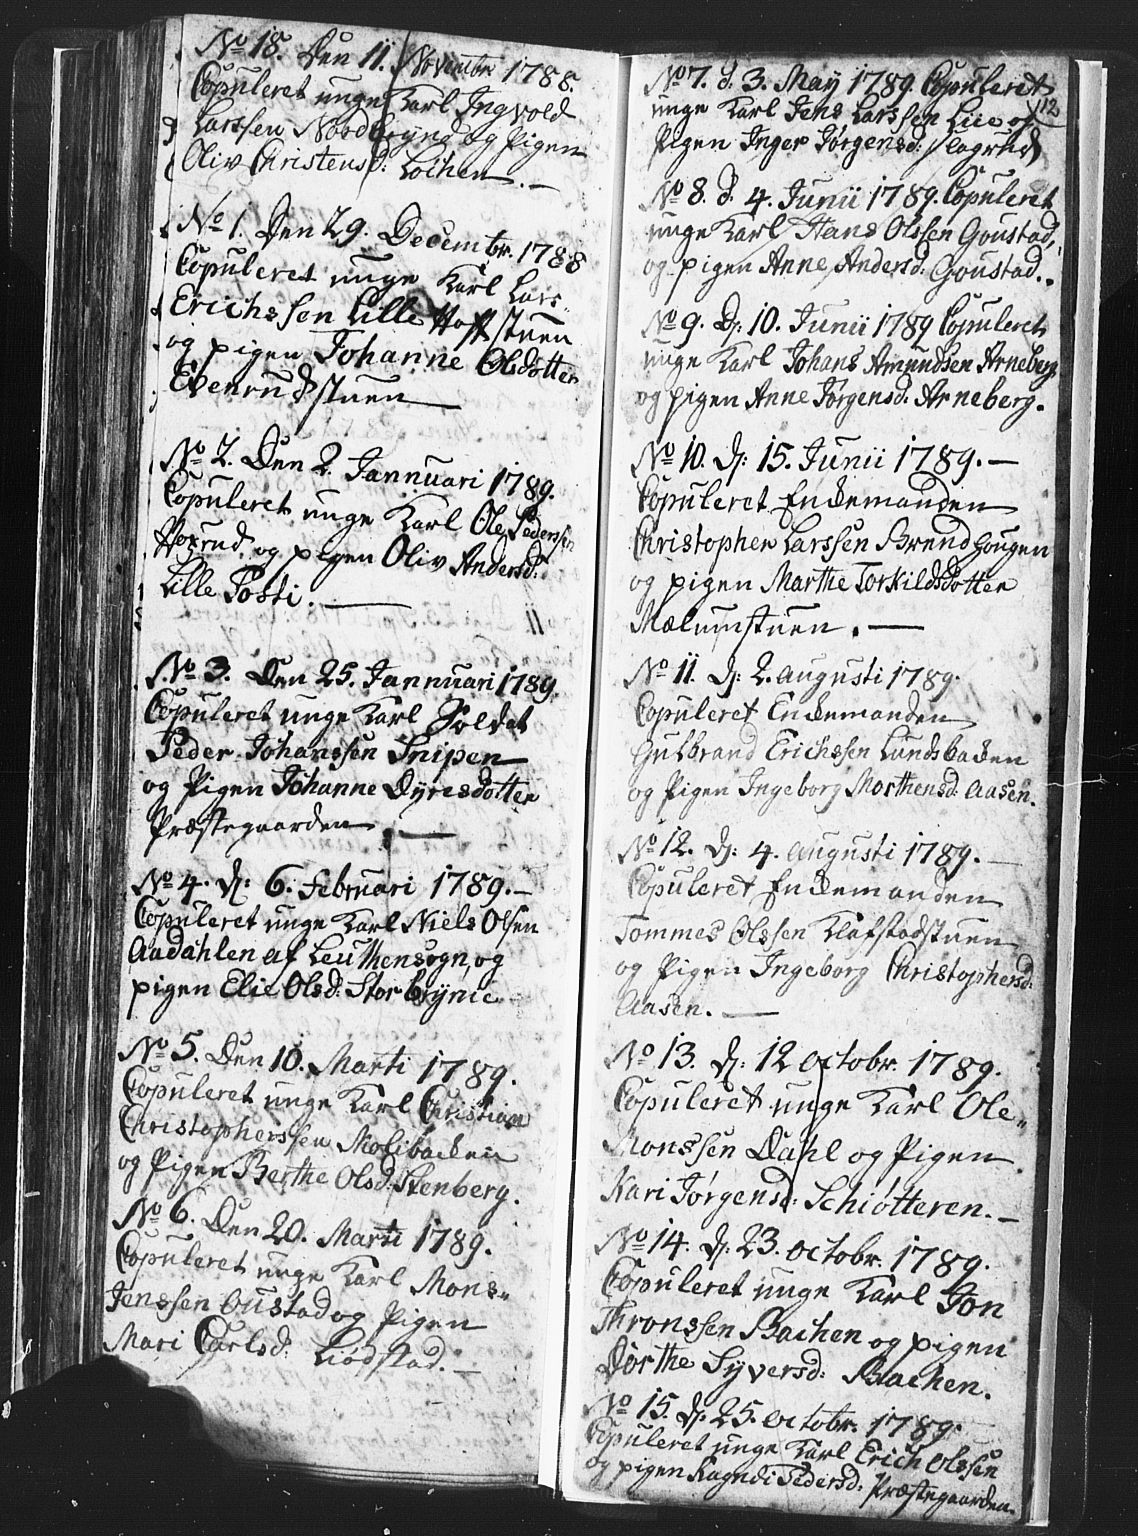 No 18. Den 11. Novembr 1788.
Copuleret unge Karl Ingvold
Larssen Nordbrynd og Pigen
Oliv Christensd: Løchen. —
No 1. Den 29. Decembr. 1788
Copuleret unge Karl Lars
Erichssen Lille Hoff stuen
og pigen Johanne Olsdotter
Evenrudstuen —
No 2. Den 2. Jannuari 1789.
Copuleret unge Karl Ole Pederssen
Hoxrud og pigen Oliv Andersd:
Lille Posti. —
No 3. Den 25. Jannuari 1789
Copuleret unge Karl Soldat
Peder Johanssen Snipen
og Pigen Johanne Dyresdotter
Præstegaarden. —
No 4. d: 6. Februari 1789. —
Copuleret unge Karl Niels Olsen
Aadahlen af Leuthensogn, og
pigen Elie Olsd: Storbrynie
No 5. Den 10. Marti 1789.
Copuleret unge Karl Christian
Christopherssen Molibacken
og Pigen Berthe Olsd: Stenberg.
No 6. Den 20. Marti 1789.
Copuleret unge Karl Mons
Jenssen Oustad og Pigen
Mari Carlsd: Liødstad. —
112
No 7. d. 3. Maij 1789. Copuleret
unge Karl Jens Larssen Lie og
Pigen Inger Jørgensd: Slagrud
No 8. d. 4. Junii 1789. Copuleret
unge Karl Hans Olssen Goustad,
og pigen Anne Andersd. Goustad.
No 9. D: 10. Junii 1789 Copuleret
unge Karl Johans Amundsen Arneberg
og pigen Anne Jørgensd. Arneberg.
No 10. d: 15. Junii 1789. —
Copuleret Enckemanden
Christopher Larssen Brendhougen
og pigen Marthe Torkildsdotter
Mælumstuen. —
No 11. d: 2. augusti 1789.
Copuleret Enckemanden
Gulbrand Erichssen Lundsbacken
og Pigen Ingeborg Morthensd: Aasen.
No 12. d: 4. augusti 1789. —
Copuleret Enckemanden
Tommes Olssen Klafstadstuen
og Pigen Ingeborg Christophersd:
Aasen. —
No 13. d: 12 octobr. 1789.
Copuleret unge Karl Ole
Monssen Dahl og Pigen
Kari Jørgensd: Schiøtteren. —
No 14. d. 23. octobr. 1789.
Copuleret unge Karl Jon
Thronssen Bachen og pigen
Dorthe Syversd: Bachen.
No 15. d. 25. octobr. 1789.
Copuleret unge Karl Erich Olssen
og pigen Ragndi Pedersd. Præstegaarden.